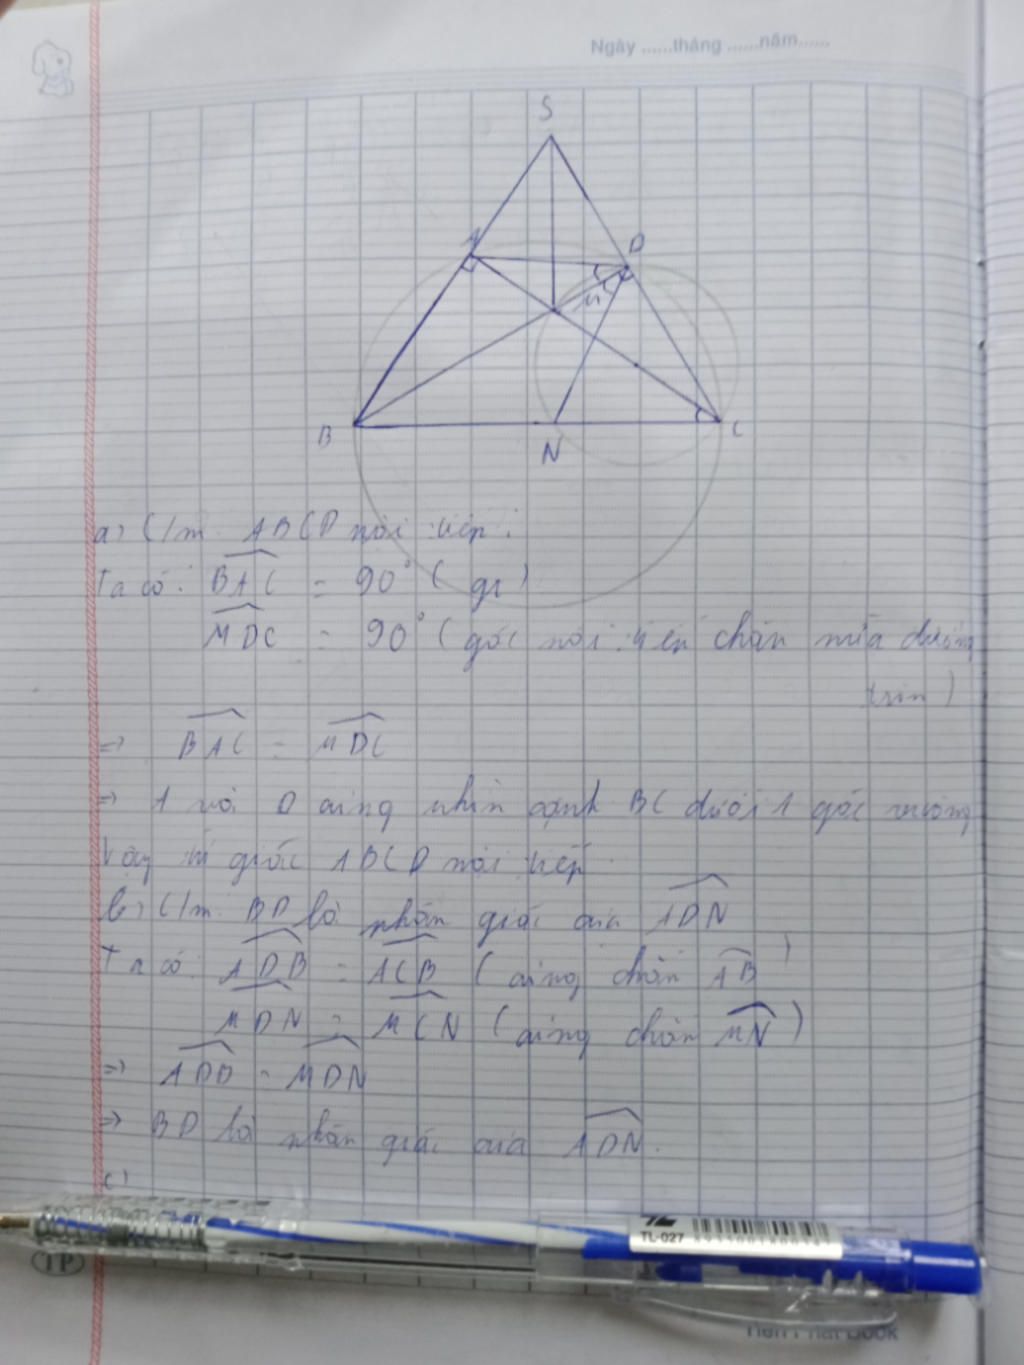 Ngày ......tháng ......năm......
S
A
D
M
B
N
C
a) C/m ABCD nội tiếp.
Ta có: BAC = 90° ( gt )
MDC = 90° ( góc nội tiếp chắn nửa đường
tròn )
=> BAC = MDC
=> A và D cùng nhìn cạnh BC dưới 1 góc vuông
Vậy tứ giác ABCD nội tiếp
b) C/m BD là phân giác của ADN
Ta có: ADB = ACB ( cùng chắn AB )
MDN = MCN ( cùng chắn MN )
=> ADB = MDN
=> BD là phân giác của ADN.
c)
TL-027
TP